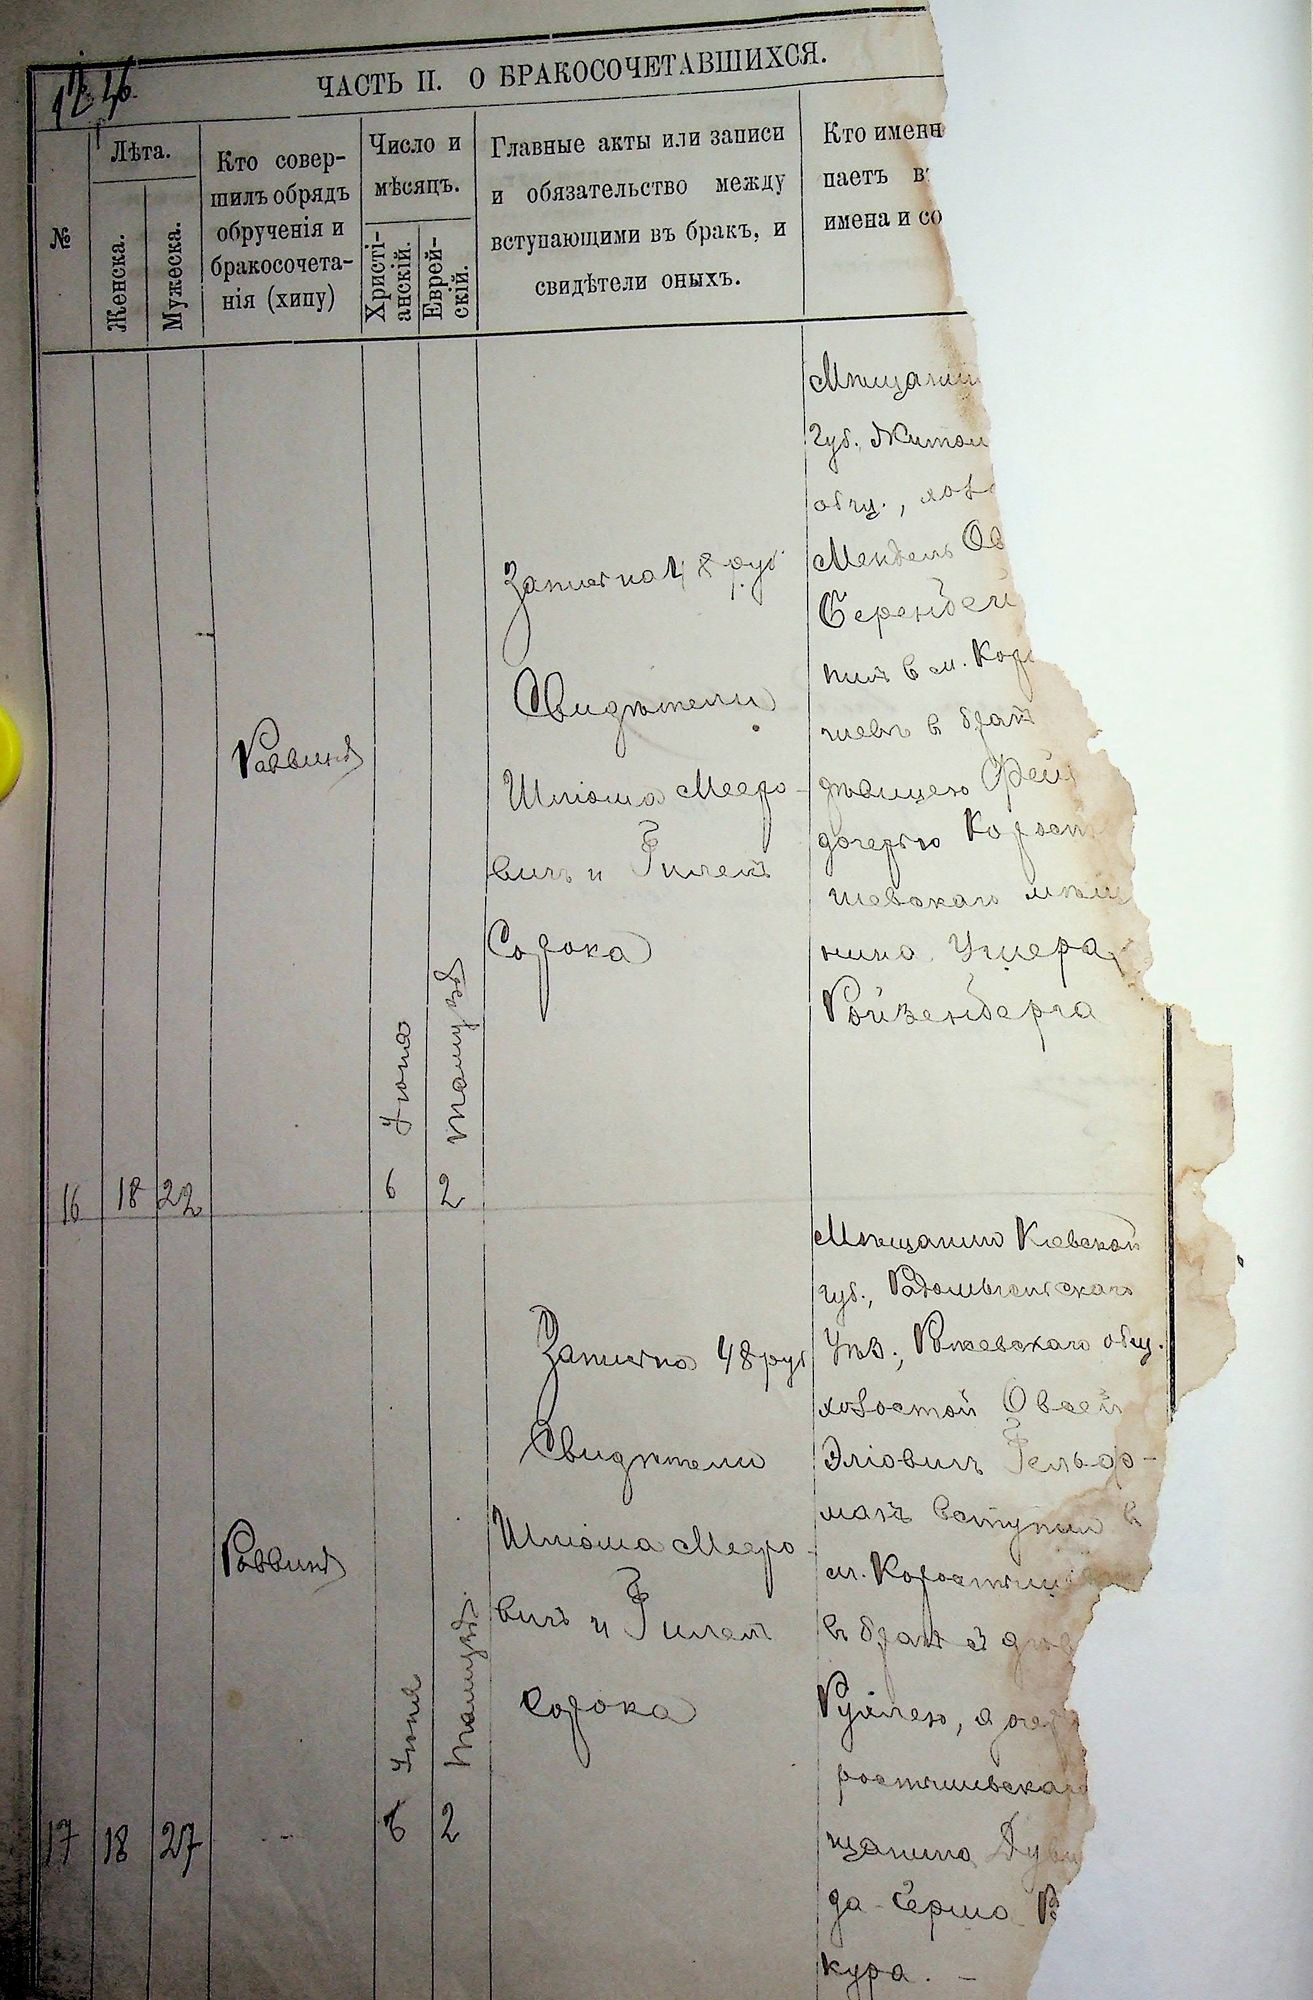 ЧАСТЬ II. О БРАКОСОЧЕТАВШИХСЯ.
№
Лѣта.
Женска.
Мужеска.
Кто совер-
шилъ обрядъ
обрученія и
бракосочета-
нія (хипу)
Число и
мѣсяцъ.
Христі-
анскій.
Еврей-
скій.
Главные акты или записи
и обязательство между
вступающими въ бракъ, и
свидѣтели оныхъ.
Кто именн
паетъ въ
имена и со
16
18
22
Раввинъ
6 Іюня
2 Тамузъ
Записью 48 руб
Свидѣтели
Шліома Мееро-
вичъ и Гилель
Сорока
Мѣщанин
губ. Житом
общ., холо
Мендель Ов
Беренбей
пилъ в м. Коро
шевъ в бракъ
дѣвицею Фей
дочерью Корост
шевскаго мѣща
нина Ушера
Ройзенберга
17
18
27
Раввинъ
6 Іюня
2 Тамузъ
Записью 48 руб
Свидѣтели
Шліома Мееро-
вичъ и Гилель
Сорока
Мѣщанинъ Кіевской
губ., Радомысльскаго
Уѣз., Рожевскаго общ.
холостой Овсей
Эліовичъ Гельфо-
манъ вступил в
м. Коростыше
въ бракъ съ дѣв
Рухлею, дочер
ростышевскаго
щанина Дуви
да-Герша
кура. -